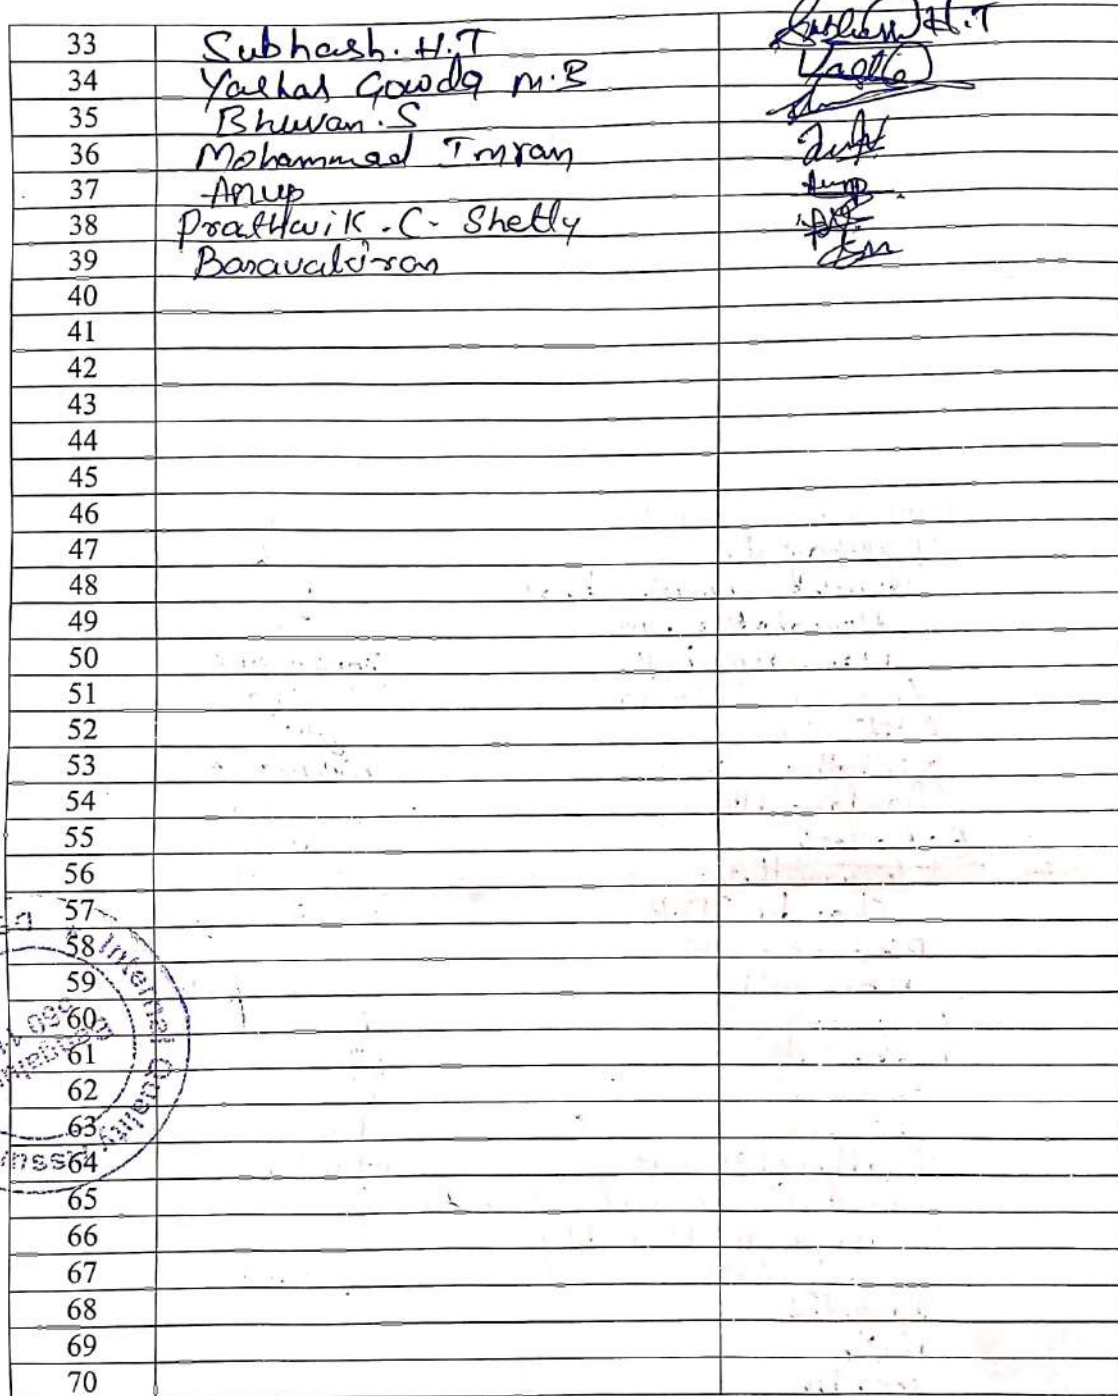 33 Subhash. H.T H.T
34 Yashas Gowda M.B
35 Bhuvan.S
36 Mohammed Imran
37 Anup Anup
38 Prathwik.C. Shetty
39 Basavakiran
40
41
42
43
44
45
46
47
48
49
50
51
52
53
54
55
56
57
58
59
60
61
62
63
64
65
66
67
68
69
70
Internal Quality